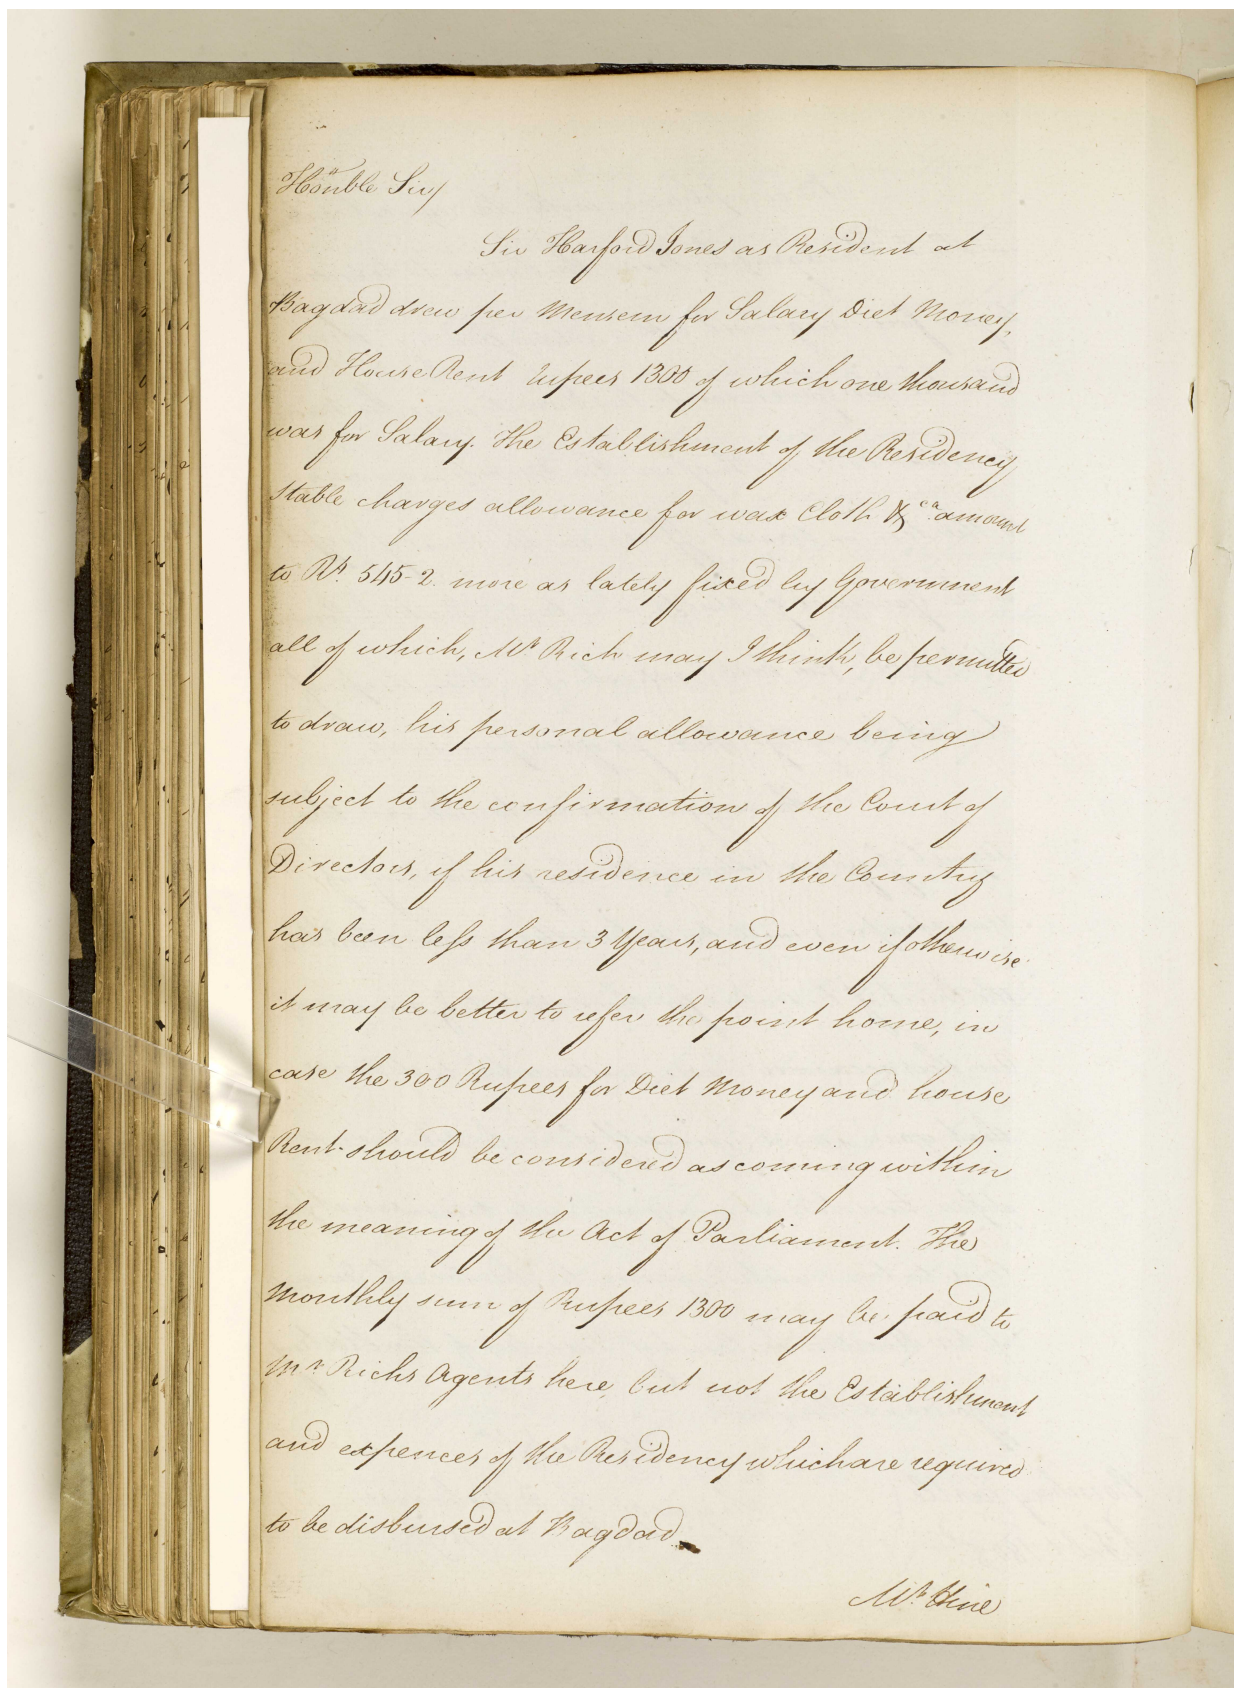 Honble Sir,
Sir Harford Jones as Resident at
Bagdad drew per Mensem for Salary Diet Money,
and House Rent rupees 1300 of which one thousand
was for Salary. The Establishment of the Residency
Stable charges allowance for wax Cloth &ca. amount
to Rs. 545-2 more as lately fixed by Government
all of which, Mr Rich may I think, be permitted
to draw, his personal allowance being
subject to the confirmation of the Court of
Directors, if his residence in the Country
has been less than 3 Years, and even if otherwise
it may be better to refer the point home, in
case the 300 Rupees for Diet Money and house
Rent should be considered as coming within
the meaning of the Act of Parliament. The
Monthly sum of Rupees 1300 may be paid to
Mr Richs Agents here but not the Establishment
and expences of the Residency which are required
to be disbursed at Bagdad
Mr. Hine